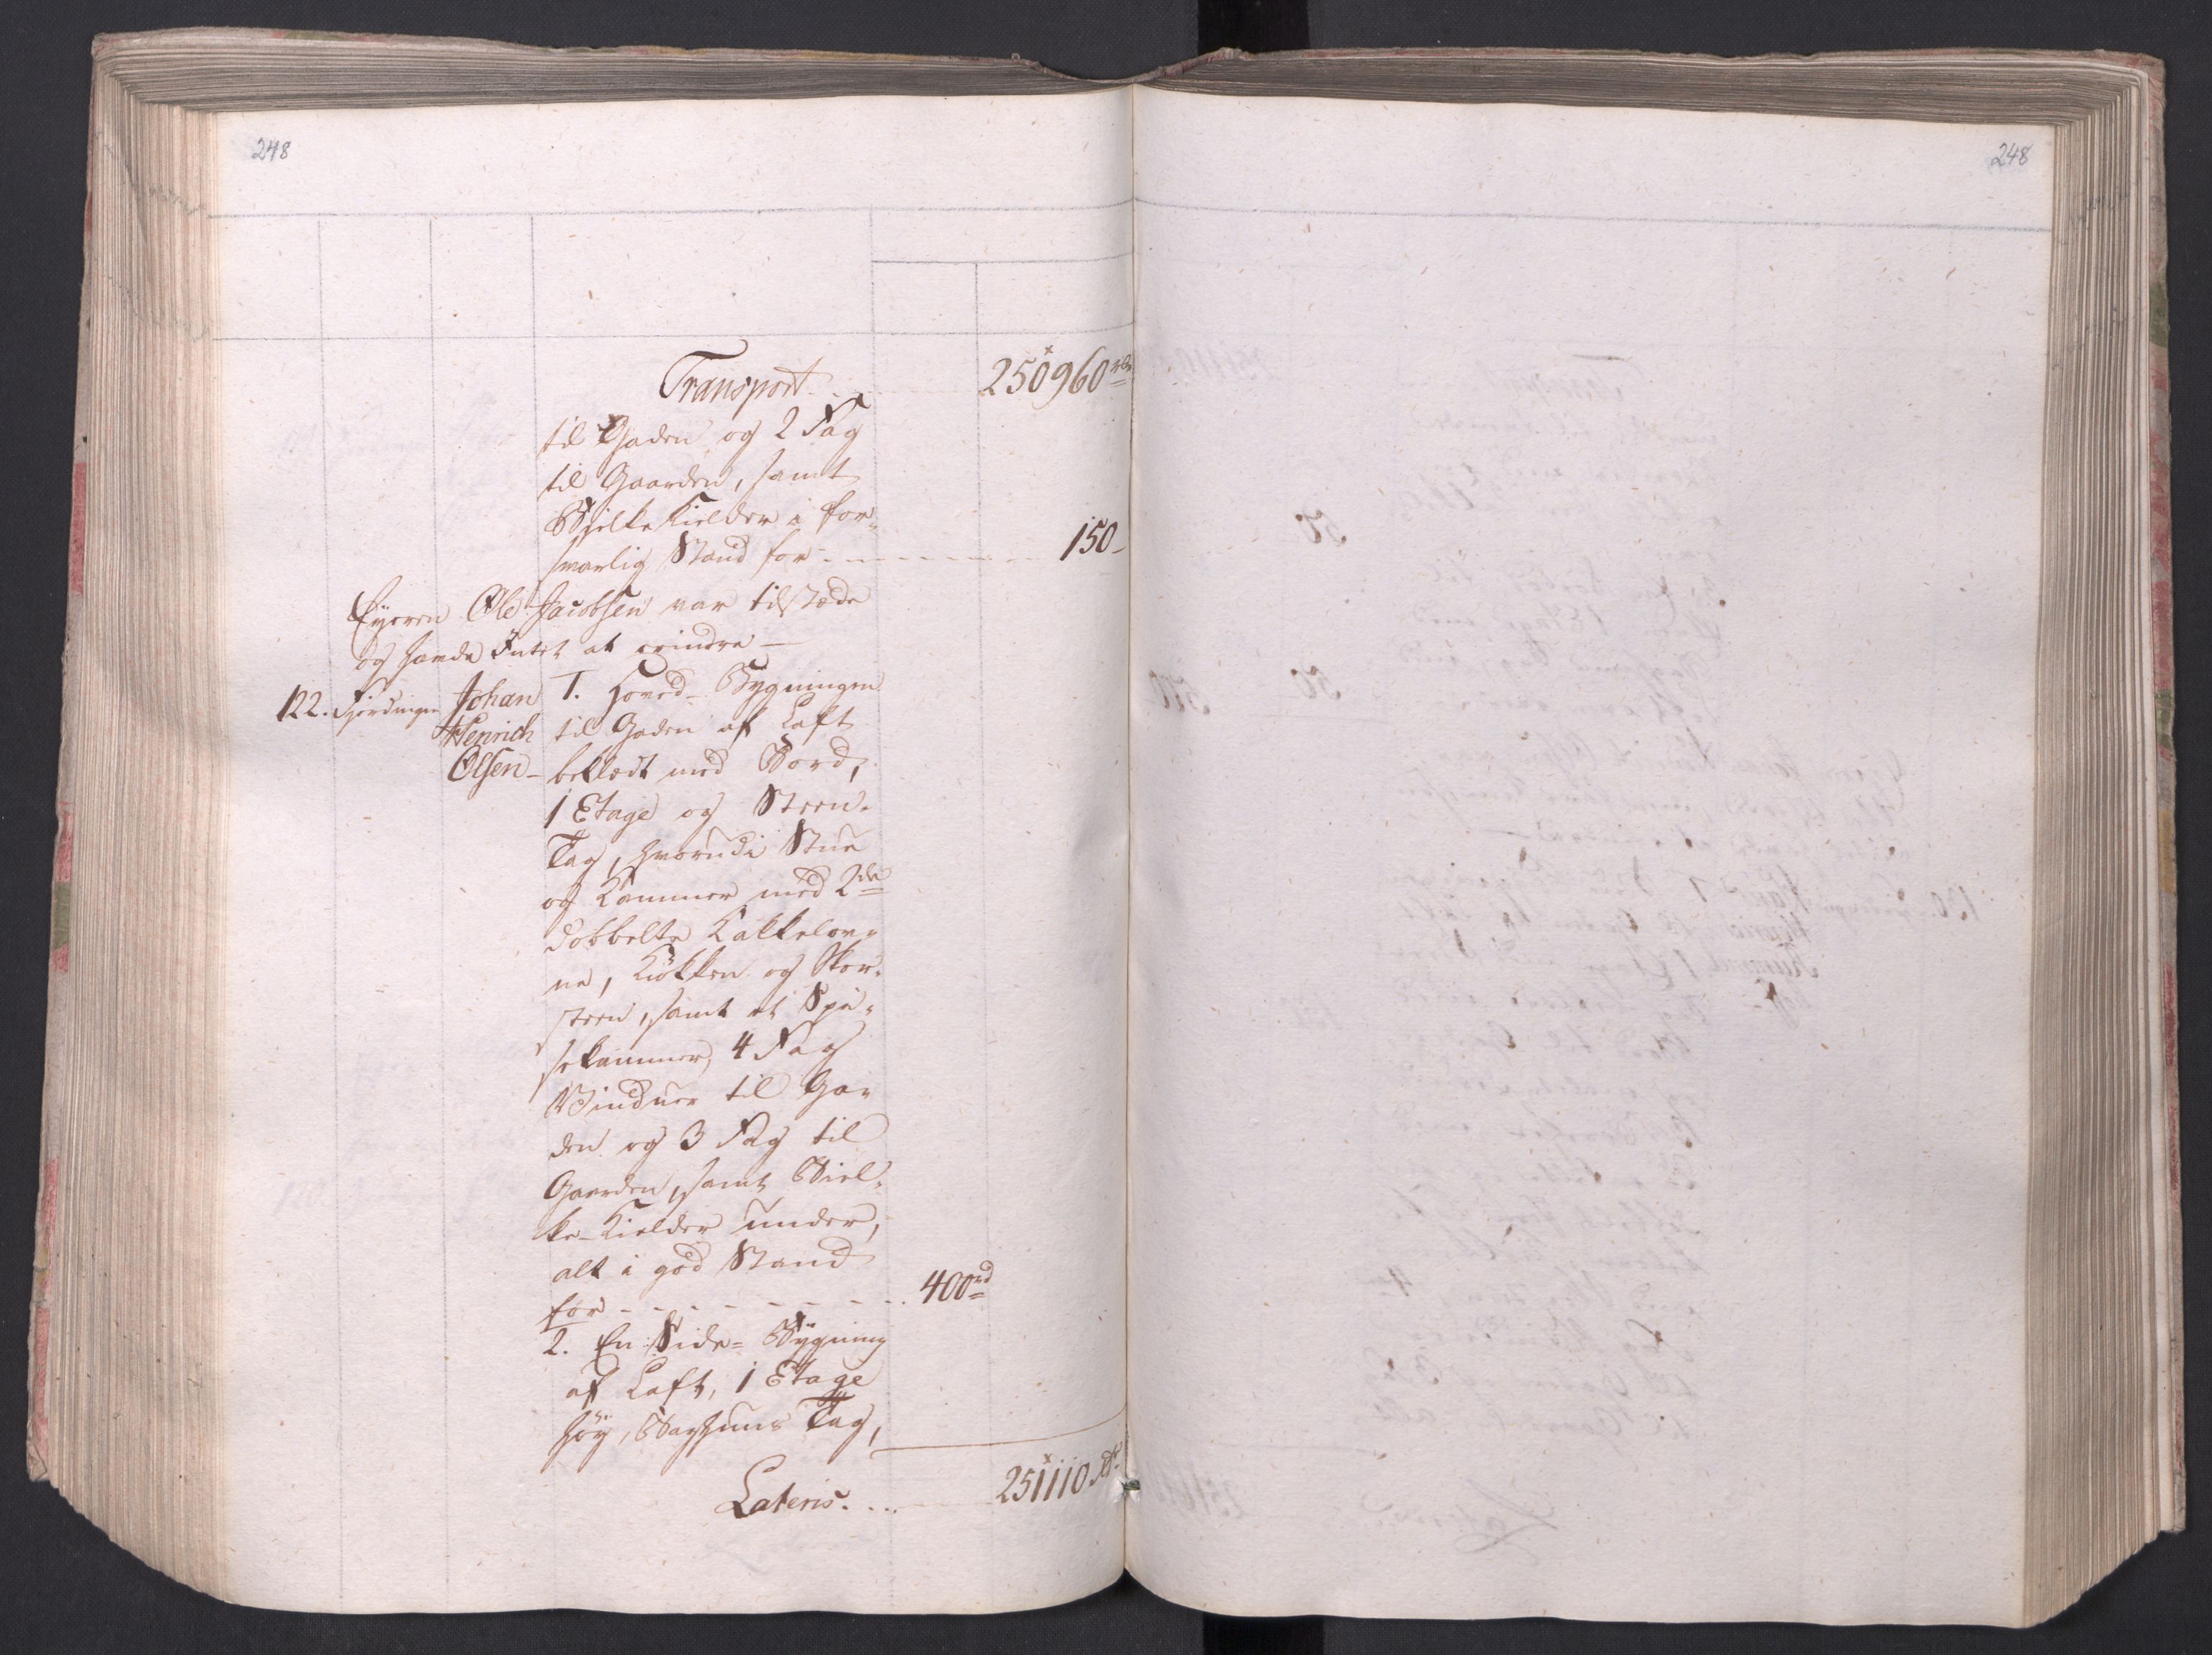 248
248
Transport . . . 250960 rdr
til Gaden og 2 Fag
til Gaarden, samt
Bjelke Kielder i for-
svarlig Stand for - - - - - 150 -
Eyeren Ole Jacobsen var tilstæde
og havde Intet at erindre —
122. Fjerdingen Johan 1. Hoved-Bygningen
Henrich til Gaden af Laft
Olsen - beklædt med Bord,
1 Etage og Steen-
Tag, hvorudi Stue
og Kammer med 2de
dobbelte Kakkelov-
ne, Kiøkken og Skor-
steen, samt et Spi-
sekammer, 4 Fag
Vinduer til Ga-
den og 3 Fag til
Gaarden, samt Biel-
ke-Kielder under,
alt i god Stand
for - - - - - - - . 400 rd
2. En Side-Bygning
af Laft, 1 Etage
høy, Baghuns Tag,
Lateris. . . . 251110 rdr